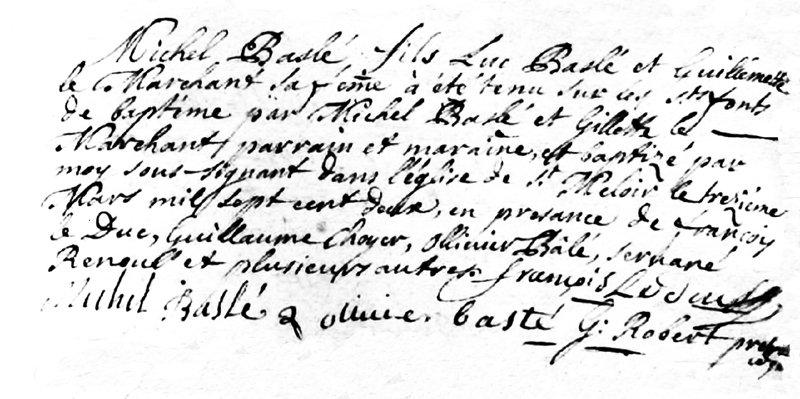 Michel Baslé, fils Luc Baslé et Guillemette
le Marchant sa fẽme à été tenu sur les Sts fonts
de baptéme par Michel Baslé et Gillette le
Marchant, parrain et maraine, et baptizé par
moy sous-signant dans l'église de St Meloir le treziéme
Mars mil sept cent deux, en presance de françois
le Duc, Guillaume Choyer, Ollivier Bâlé, servané
Renoul et plusieurs autres françois Leduc
Michel Baslé olivier basle G: Robert